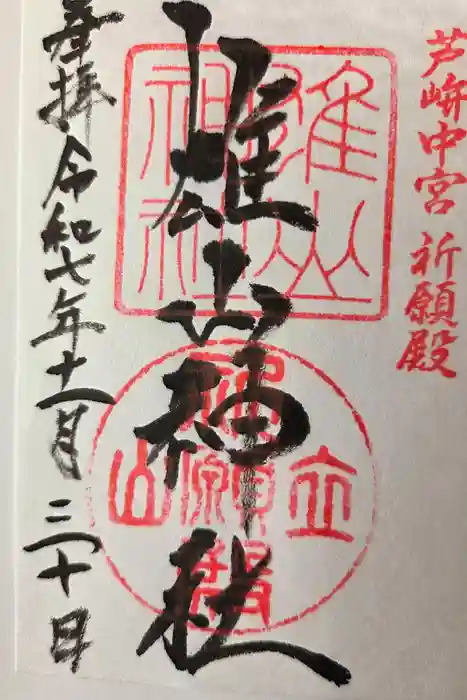 芦峅中宮祈願殿
雄山神社
雄山神社
立山
祈願殿
奉拝 令和七年十一月三十日